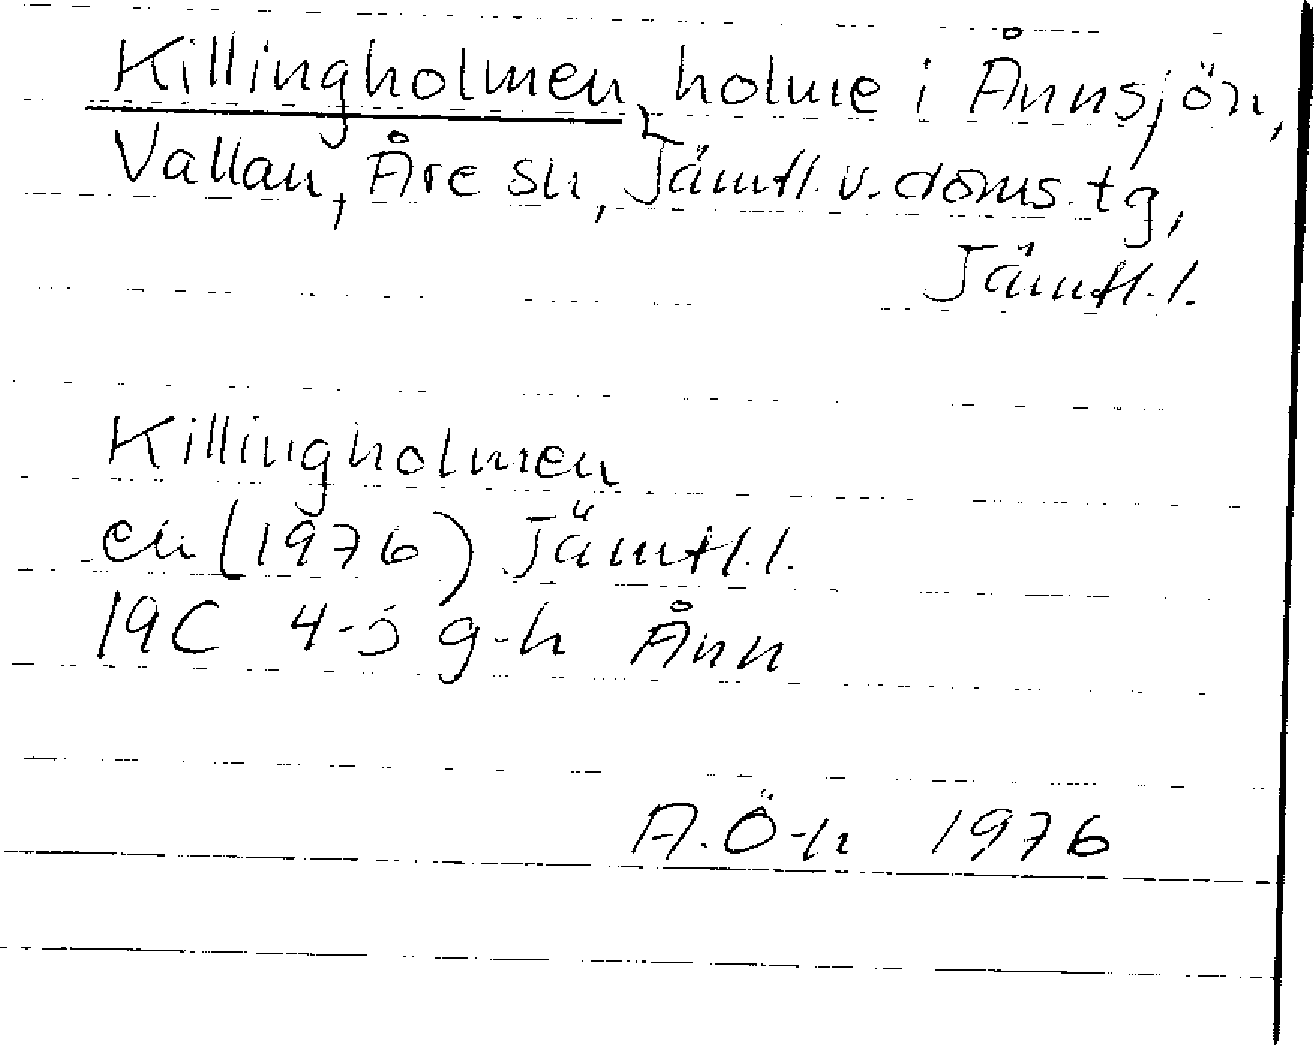 Killingholmen, holme i Ånnsjön,
Vallan, Åre sn, Jämtl. v. doms. tg,
Jämtl. l.
Killingholmen
ek (1976) Jämtl. l.
19C 4-5 g-h Ånn
A. Ö-n 1976